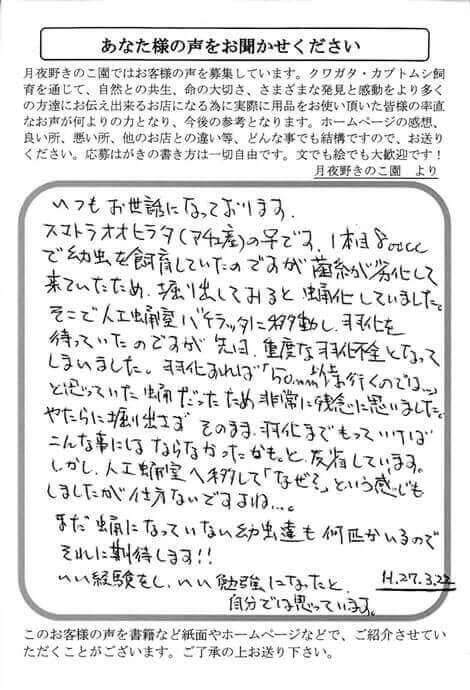 あなた様の声をお聞かせください
月夜野きのこ園ではお客様の声を募集しています。クワガタ・カブトムシ飼
育を通じて、自然との共生、命の大切さ、さまざまな発見と感動をより多く
の方達にお伝え出来るお店になる為に実際に用品をお使い頂いた皆様の率直
なお声が何よりの力となり、今後の参考となります。ホームページの感想、
良い所、悪い所、他のお店との違い等、どんな事でも結構ですので、お送り
ください。応募はがきの書き方は一切自由です。文でも絵でも大歓迎です！
月夜野きのこ園 より
いつもお世話になっております。
スマトラオオヒラタ(アチェ産)の♀です。1本目800cc
で幼虫を飼育していたのですが菌糸が劣化して
来ていたため、掘り出してみると蛹化していました。
そこで人工蛹室に移動し、羽化を
待っていたのですが先日、重度な羽化不全となって
しまいました。羽化すれば「50mm後行くのでは…」
と思っていた蛹だったため非常に残念に思いました。
やたらに掘り出さず そのまま羽化までもっていけば
こんな事にはならなかったかも。と、反省しています。
しかし、人工蛹室へ移して「なぜ?」という感じも
しましたが仕方ないですよね…。
まだ蛹になっていない幼虫達も何匹かいるので
それに期待します!!
いい経験をし、いい勉強になったと、
自分では思っています。
H.27.3.22
このお客様の声を書籍など紙面やホームページなどで、ご紹介させてい
ただくことがございます。ご了承の上お送り下さい。